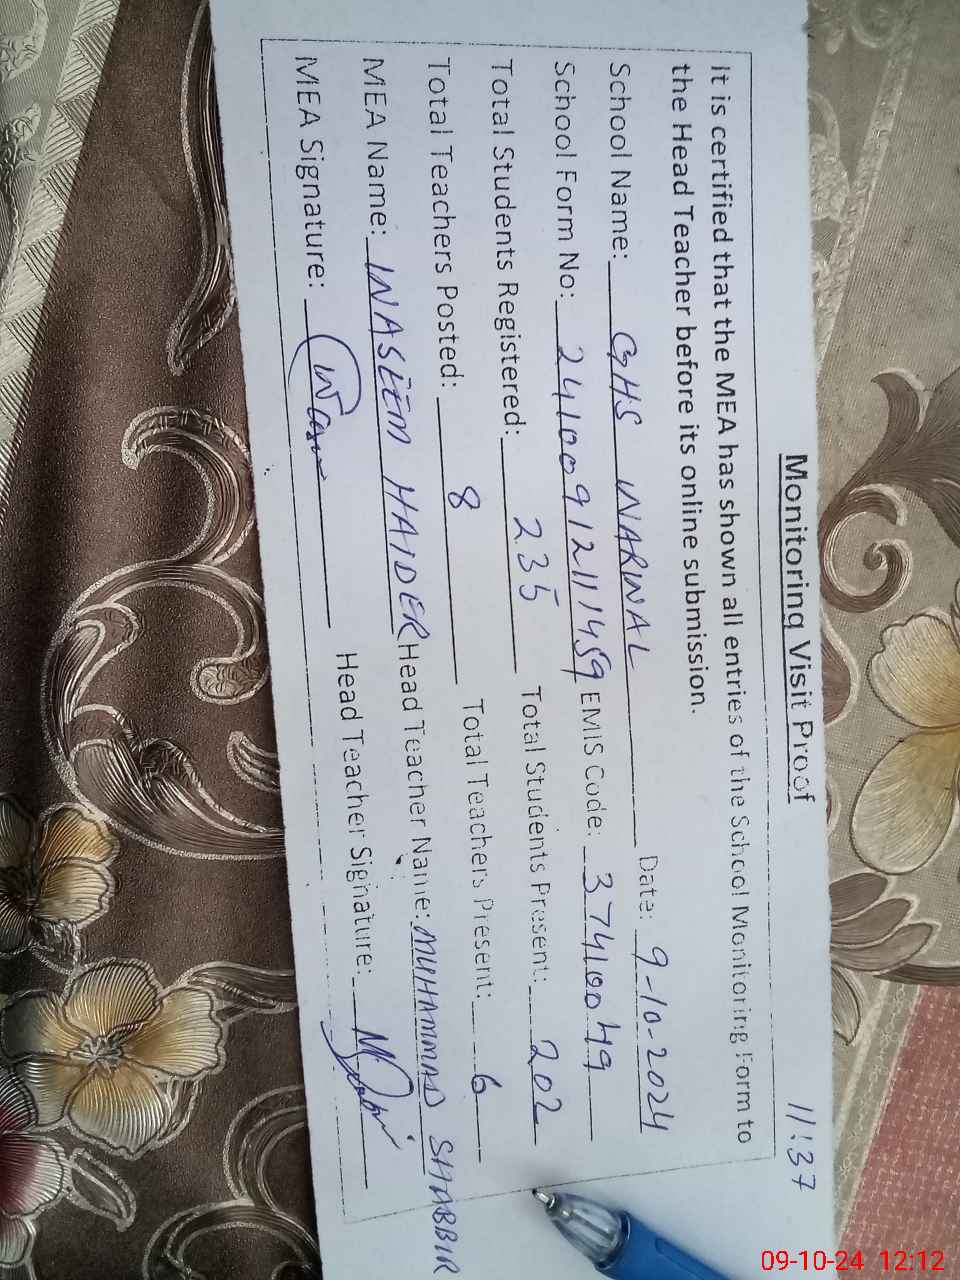 Monitoring Visit Proof 11:37
It is certified that the MEA has shown all entries of the School Monitoring Form to
the Head Teacher before its online submission.
School Name: GHS NARWAL Date: 9-10-2024
School Form No: 241009121111459 EMIS Code: 37410049
Total Students Registered: 235 Total Students Present: 202
Total Teachers Posted: 8 Total Teachers Present: 6
MEA Name: WASEEM HAIDER Head Teacher Name: MUHAMMAD SHABBIR
MEA Signature: Head Teacher Signature:
09-10-24 12:12